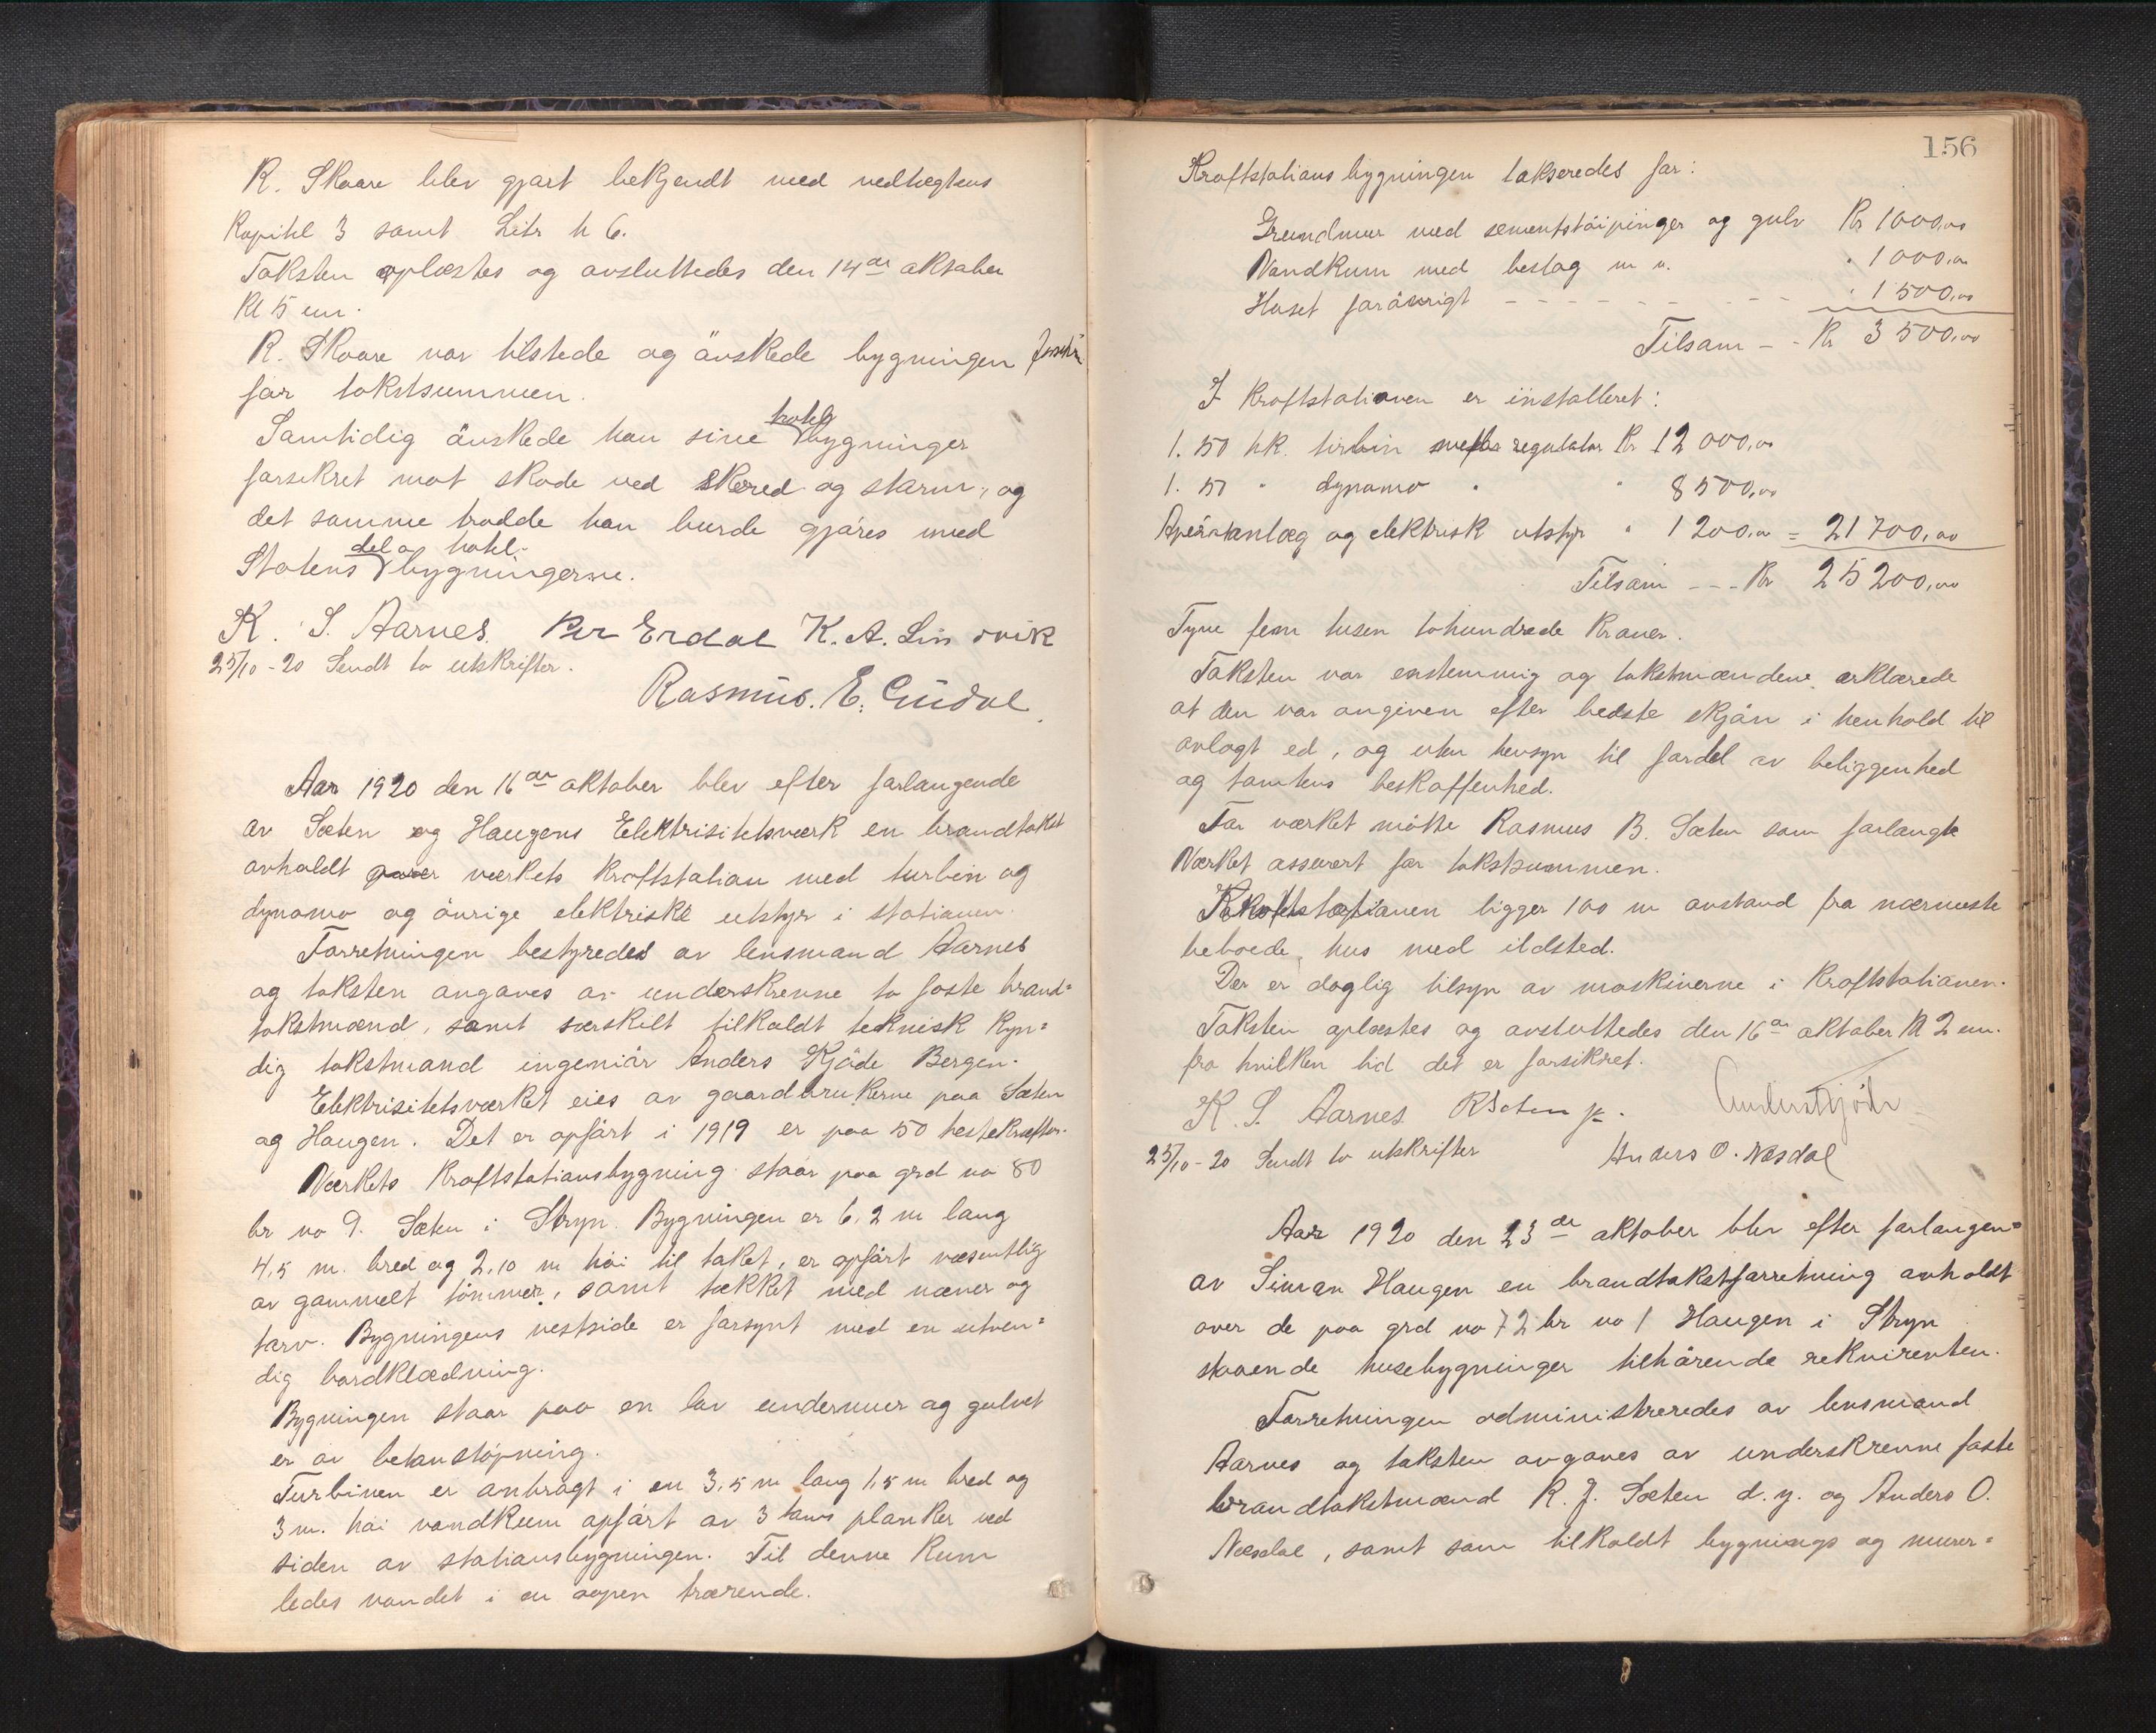 R. Skaare blev gjort bekjendt med vedtegtens
Kapitel 3 samt Litr h 6.
Taksten oplæstes og avsluttedes den 14de oktober
Kl 5 em.
R. Skaare var tilstede og önskede bygningen
for takstsummen.
Samtidig önskede han sine hotel bygninger
forsikret mot skade ved skred og storm, og
det samme trodde han burde gjöres med
Statens del a hotel-bygningerne.
K. S. Aarnes. Per Erdal K. A. Linsvik
25/10-20 Sendt to utskrifter.
Rasmus. E. Gudal
Aar 1920 den 16de oktober blev efter forlangende
av Sæten og Haugens Elektrisitetsværk en brandtakst
avholdt over værkets Kraftstation med turbin og
dynamo og övrige elektriske utstyr i stationen.
Forretningen bestyredes av lensmand Aarnes
og taksten avgaves av underskrevne to faste brand=
takstmænd, samt særskilt tilkaldt teknisk kyn=
dig takstmand ingeniör Anders Kjöde Bergen.
Elektrisitetsværket eies av gaardbrukerne paa Sæten
og Haugen. Det er opfört i 1919 er paa 50 hestekræfter.
Værkets Kraftstationsbygning staar paa grd no 80
br no 9. Sæten i Stryn. Bygningen er 6,2 m lang
4,5 m. bred og 2,10 m höi til taket, er opfört væsentlig
av gammelt tömmer, samt tækket med næver og
torv. Bygningens vestside er forsynt med en utven=
dig bordklædning.
Bygningen staar paa en lav undermur og gulvet
er av betonstöpning.
Turbinen er anbragt i en 3,5 m lang 1,5 m bred og
3 m. höi vandkum opfört av 3 toms planker ved
siden av stationsbygningen. Til denne Kum
ledes vandet i en aapen trærende.
156
Kraftstationsbygningen takseredes for:
Grundmur med sementstöipninger og gulv Kr 1000,00
Vandkum med beslag m m. " 1000,00
Huset forövrigt - - - - - - - - " 1500,00
Tilsam - - Kr 3500,00
I Kraftstationen er installeret:
1. 50 hk. tirbin regulator Kr 12 000,00
1. 50 " dynamo " " 8500,00
og elektrisk utstyr " 1200,00 = 21700,00
Tilsam - - - Kr 25200,00
Tyve fem tusen tohundrede Kroner.
Taksten var enstemmig og takstmændene erklærede
at den var angiven efter bedste skjön i henhold til
avlagt ed, og uten hensyn til fordel av beliggenhed
og tomtens beskaffenhed.
For værket mötte Rasmus B. Sæten som forlangte
Værket assurert for takstsummen.
Kraftstationen ligger 100 m avstand fra nærmeste
beboede hus med ildsted.
Der er daglig tilsyn av maskinerne i Kraftstationen.
Taksten oplæstes og avsluttedes den 16de oktober Kl 2 em.
fra hvilken tid det er forsikret.
K. S. Aarnes RSeten jr. Anders Kjöde
25/10-20 Sendt to utskrifter Anders O. Næsdal
Aar 1920 den 23de oktober blev efter forlangen=
av Simon Haugen en brandtakstforretning avholdt
over de paa grd no 72 br no 1 Haugen i Stryn
staaende husebygninger tilhörende rekvirenten.
Forretningen administreredes av lensmand
Aarnes og taksten avgaves av underskrevne faste
brandtakstmænd R. J. Sæten d.y. og Anders O.
Næsdal, samt som tilkaldt bygnings og murer=